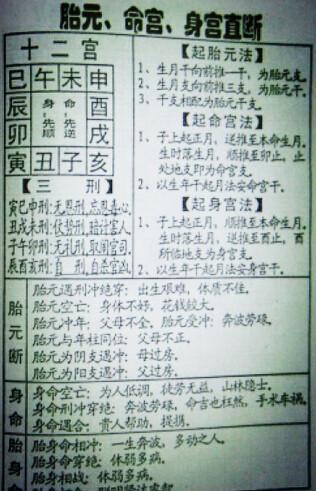 胎元、命宫、身宫直断
十二宫
巳午未申
辰 身:先顺 命:先逆 酉
卯 戌
寅丑子亥
【三 刑】
寅巳申刑:无恩刑,忘恩毒心。
丑戌未刑:仗势刑,
子午卯刑:无礼刑,
辰酉亥刑:自 刑,自杀官凶。
【起胎元法】
1、生月干向前推一干,为胎元支。
2、生月支向前推三支,为胎元干。
3、干支相配为胎元干支。
【起命宫法】
1、子上起正月,逆推至本命生月。
生时落生月,顺推至卯止,止
处地支即为命宫支。
2、以生年干起月法安命宫干。
【起身宫法】
1、子上起正月,顺推至本命生月。
生时落生月,逆推至酉止,酉
所临地支为身宫支。
2、以生年干起月法安身宫干。
胎元断
胎元遇刑冲绝穿:出生艰难,体质不佳。
胎元空亡:身体不好,花钱较大。
胎元冲年:父母不全。胎元受冲:奔波劳碌。
胎元与年柱同位:父母不正。
胎元为阴支遇冲:母过房。
胎元为阳支遇冲:父过房。
身命
身命空亡:为人低调,徒劳无益,山林隐士。
身命刑冲穿绝:奔波劳碌,命吉也枉然,手术车祸。
身命遇合:贵人帮助,提携。
胎身命
胎身命相冲:一生奔波,多动之人。
胎身命穿绝:体弱多病。
胎身相战:体弱多病。